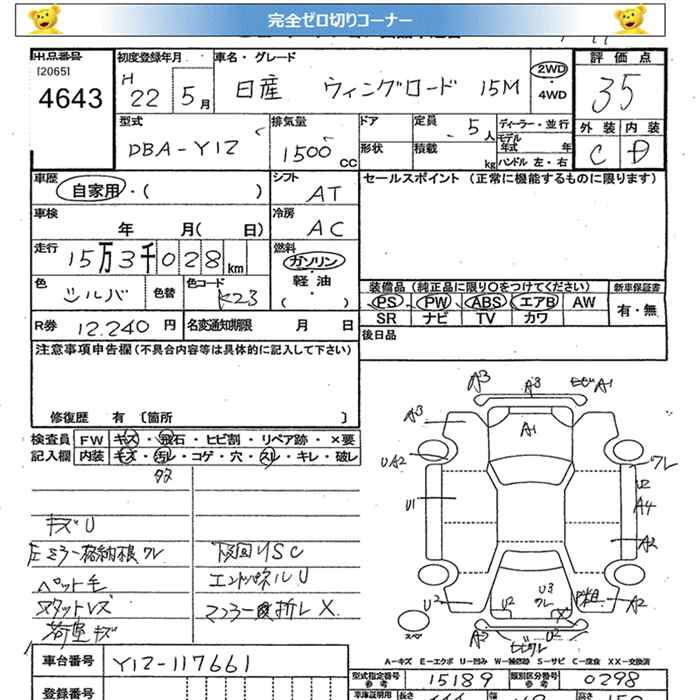 完全ゼロ切りコーナー
出品番号
[2065]
4643
初度登録年月
H 22 5月
車名・グレード
日産 ウィングロード 15M
2WD
・4WD
評価点
35
外装 内装
C D
型式
DBA-Y12
排気量
1500cc
ドア
形状
定員 5人
積載 kg
ディーラー・並行
モデル年式 年
ハンドル 左・右
車歴
自家用・( )
シフト
AT
セールスポイント (正常に機能するものに限ります)
車検
年 月( 日)
冷房
AC
走行
15万3千028km
燃料
ガソリン・
軽油
( )
色
シルバ
色替
色コード
K23
装備品 (純正品に限り○をつけてください)
新車保証書
PS PW ABS エアB AW
SR ナビ TV カワ
有・無
R券 12,240円
名変通知期限 月 日
後日品
注意事項申告欄(不具合内容等は具体的に記入して下さい)
修復歴 有 〔箇所 〕
検査員
記入欄
FW キズ・飛石・ヒビ割・リペア跡・×要
内装 キズ・汚レ・コゲ・穴・スレ・キレ・破レ
キズU
左ミラー格納根ワレ
ペット毛
スタットレズ
荷室キズ
下回リSC
エンドパネルU
マフラー
折レX
A3 A3 A1
A3 A1
UA2 ワレ
U1 U2
A4
A2
U3
ワレ
U2 U2 A2
A3 U2
スペア
A-キズ E-エクボ U-凹み W-補修跡 S-サビ C-腐食 XX-交換済
車台番号 Y12-117661
型式指定番号 15189
類別区分番号 0298
登録番号
車庫証明用
長さ